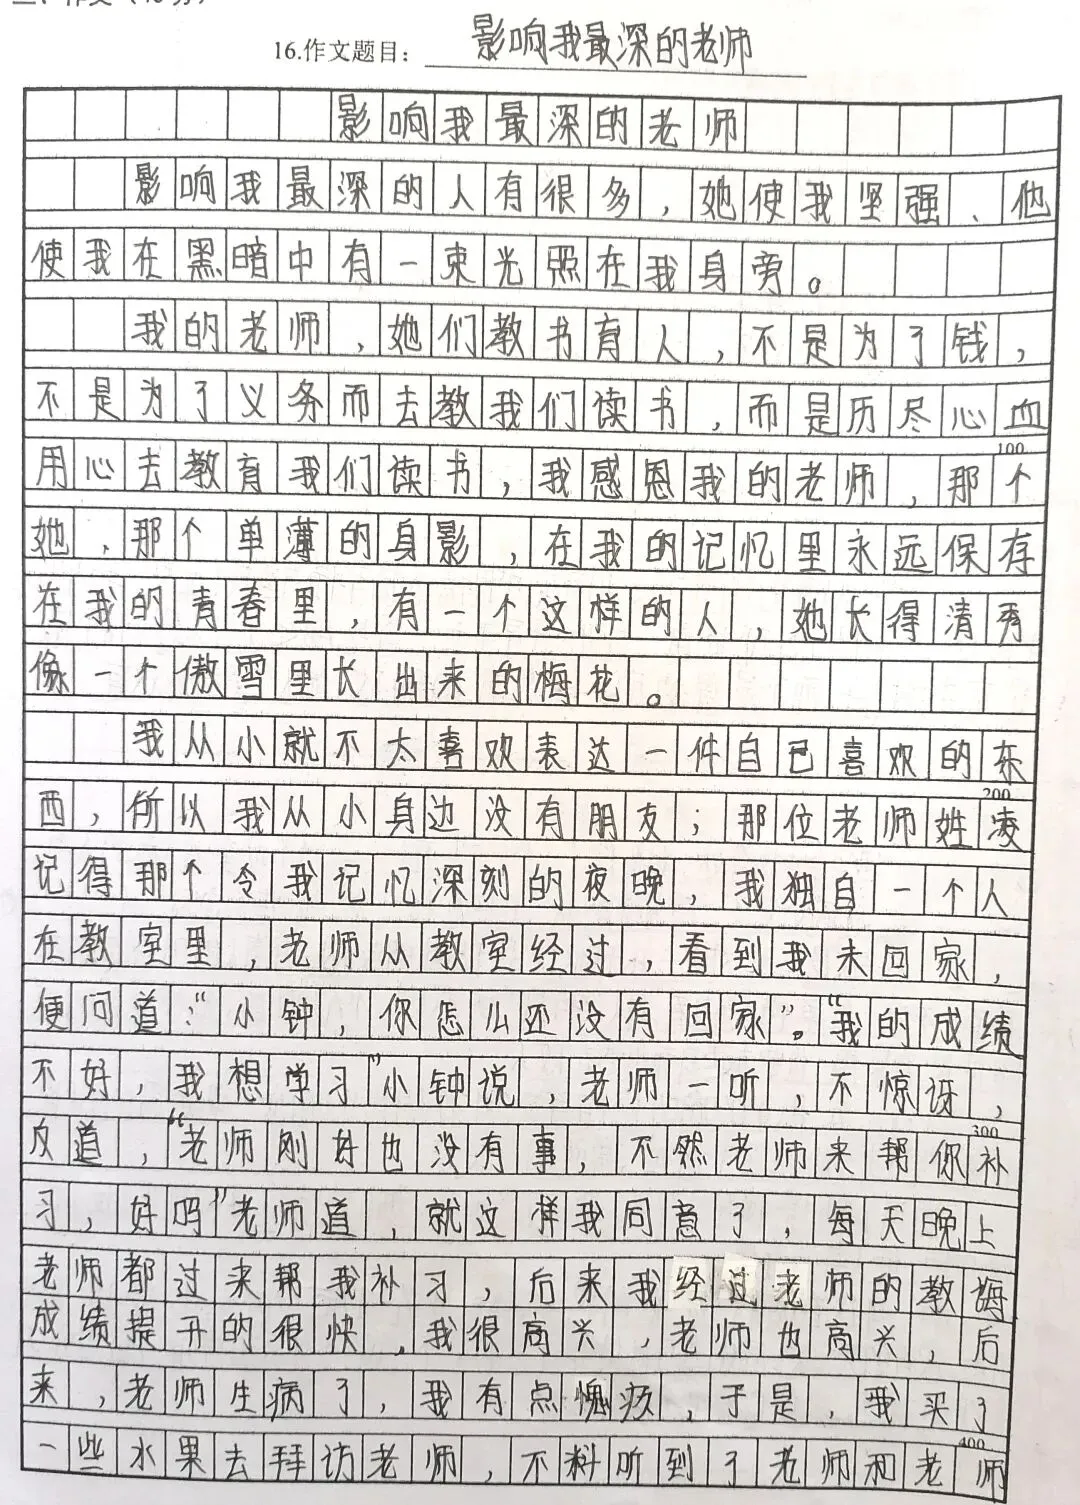 16.作文题目：影响我最深的老师
影响我最深的老师
影响我最深的人有很多，她使我坚强、他
使我在黑暗中有一束光照在我身旁。
我的老师，她们教书育人，不是为了钱，
不是为了义务而去教我们读书，而是历尽心血
100
用心去教育我们读书，我感恩我的老师，那个
她、那个单薄的身影，在我的记忆里永远保存
在我的青春里，有一个这样的人，她长得清秀
像一个傲雪里长出来的梅花。
我从小就不太喜欢表达一件自己喜欢的东
200
西，所以我从小身边没有朋友；那位老师姓凌
记得那个令我记忆深刻的夜晚，我独自一个人
在教室里，老师从教室经过，看到我未回家，
便问道：“小钟，你怎么还没有回家”。“我的成绩
不好，我想学习”小钟说，老师一听，不惊讶，
300
反道，“老师刚好也没有事，不然老师来帮你补
习，好吗”老师道，就这样我同意了，每天晚上
老师都过来帮我补习，后来我经过老师的教诲
成绩提升的很快，我很高兴，老师也高兴，后
来，老师生病了，我有点愧疚，于是，我买了
400
一些水果去拜访老师，不料听到了老师和老师